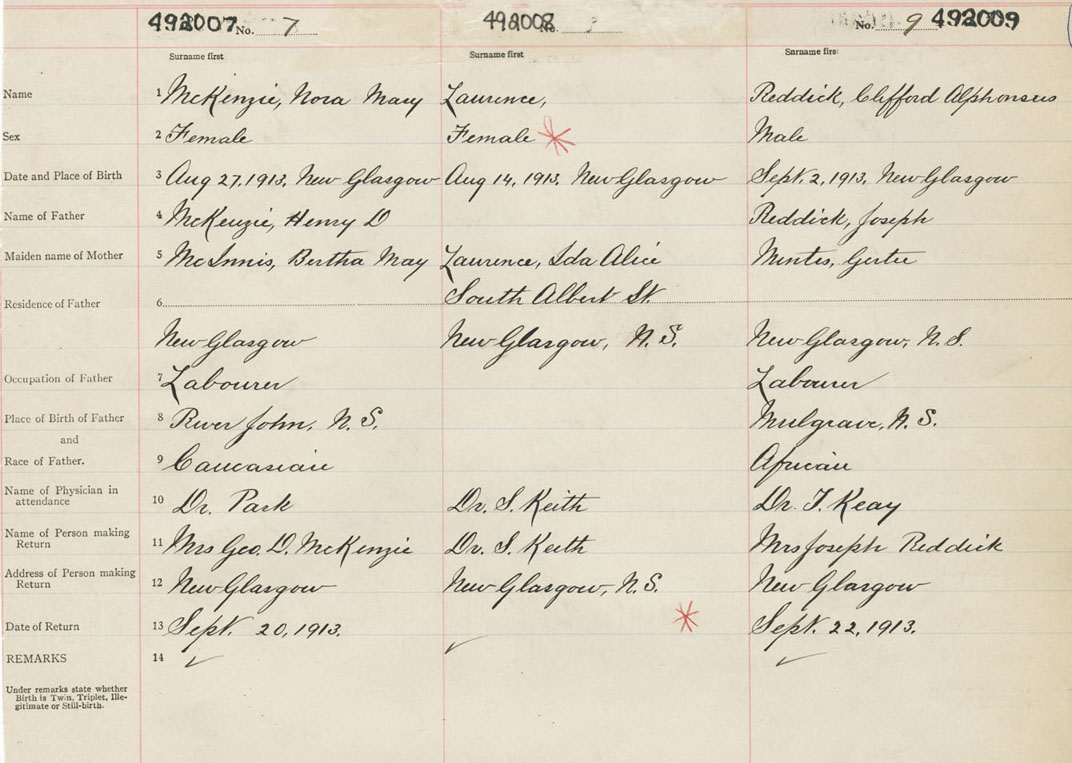 492007 No. 7 492008 No. No. 9 492009
Surname first Surname first Surname first
Name 1 McKenzie, Nora Mary Laurence, Reddick, Clifford Alphonsus
Sex 2 Female Female Male
Date and Place of Birth 3 Aug 27, 1913, New Glasgow Aug 14, 1913, New Glasgow Sept. 2, 1913, New Glasgow
Name of Father 4 McKenzie, Henry D Reddick, Joseph
Maiden name of Mother 5 McInnis, Bertha May Laurence, Ida Alice Mintes, Gertie
Residence of Father 6 South Albert St.
New Glasgow New Glasgow, N.S. New Glasgow, N.S.
Occupation of Father 7 Labourer Labourer
Place of Birth of Father 8 River John, N.S. Mulgrave, N.S.
and
Race of Father. 9 Caucasian African
Name of Physician in
attendance 10 Dr. Park Dr. S. Keith Dr. T. Keay
Name of Person making
Return 11 Mrs Geo. D. McKenzie Dr. S. Keith Mrs Joseph Reddick
Address of Person making
Return 12 New Glasgow New Glasgow, N.S. New Glasgow
Date of Return 13 Sept. 20, 1913. Sept. 22, 1913.
REMARKS 14
Under remarks state whether
Birth is Twin, Triplet, Ille-
gitimate or Still-birth.